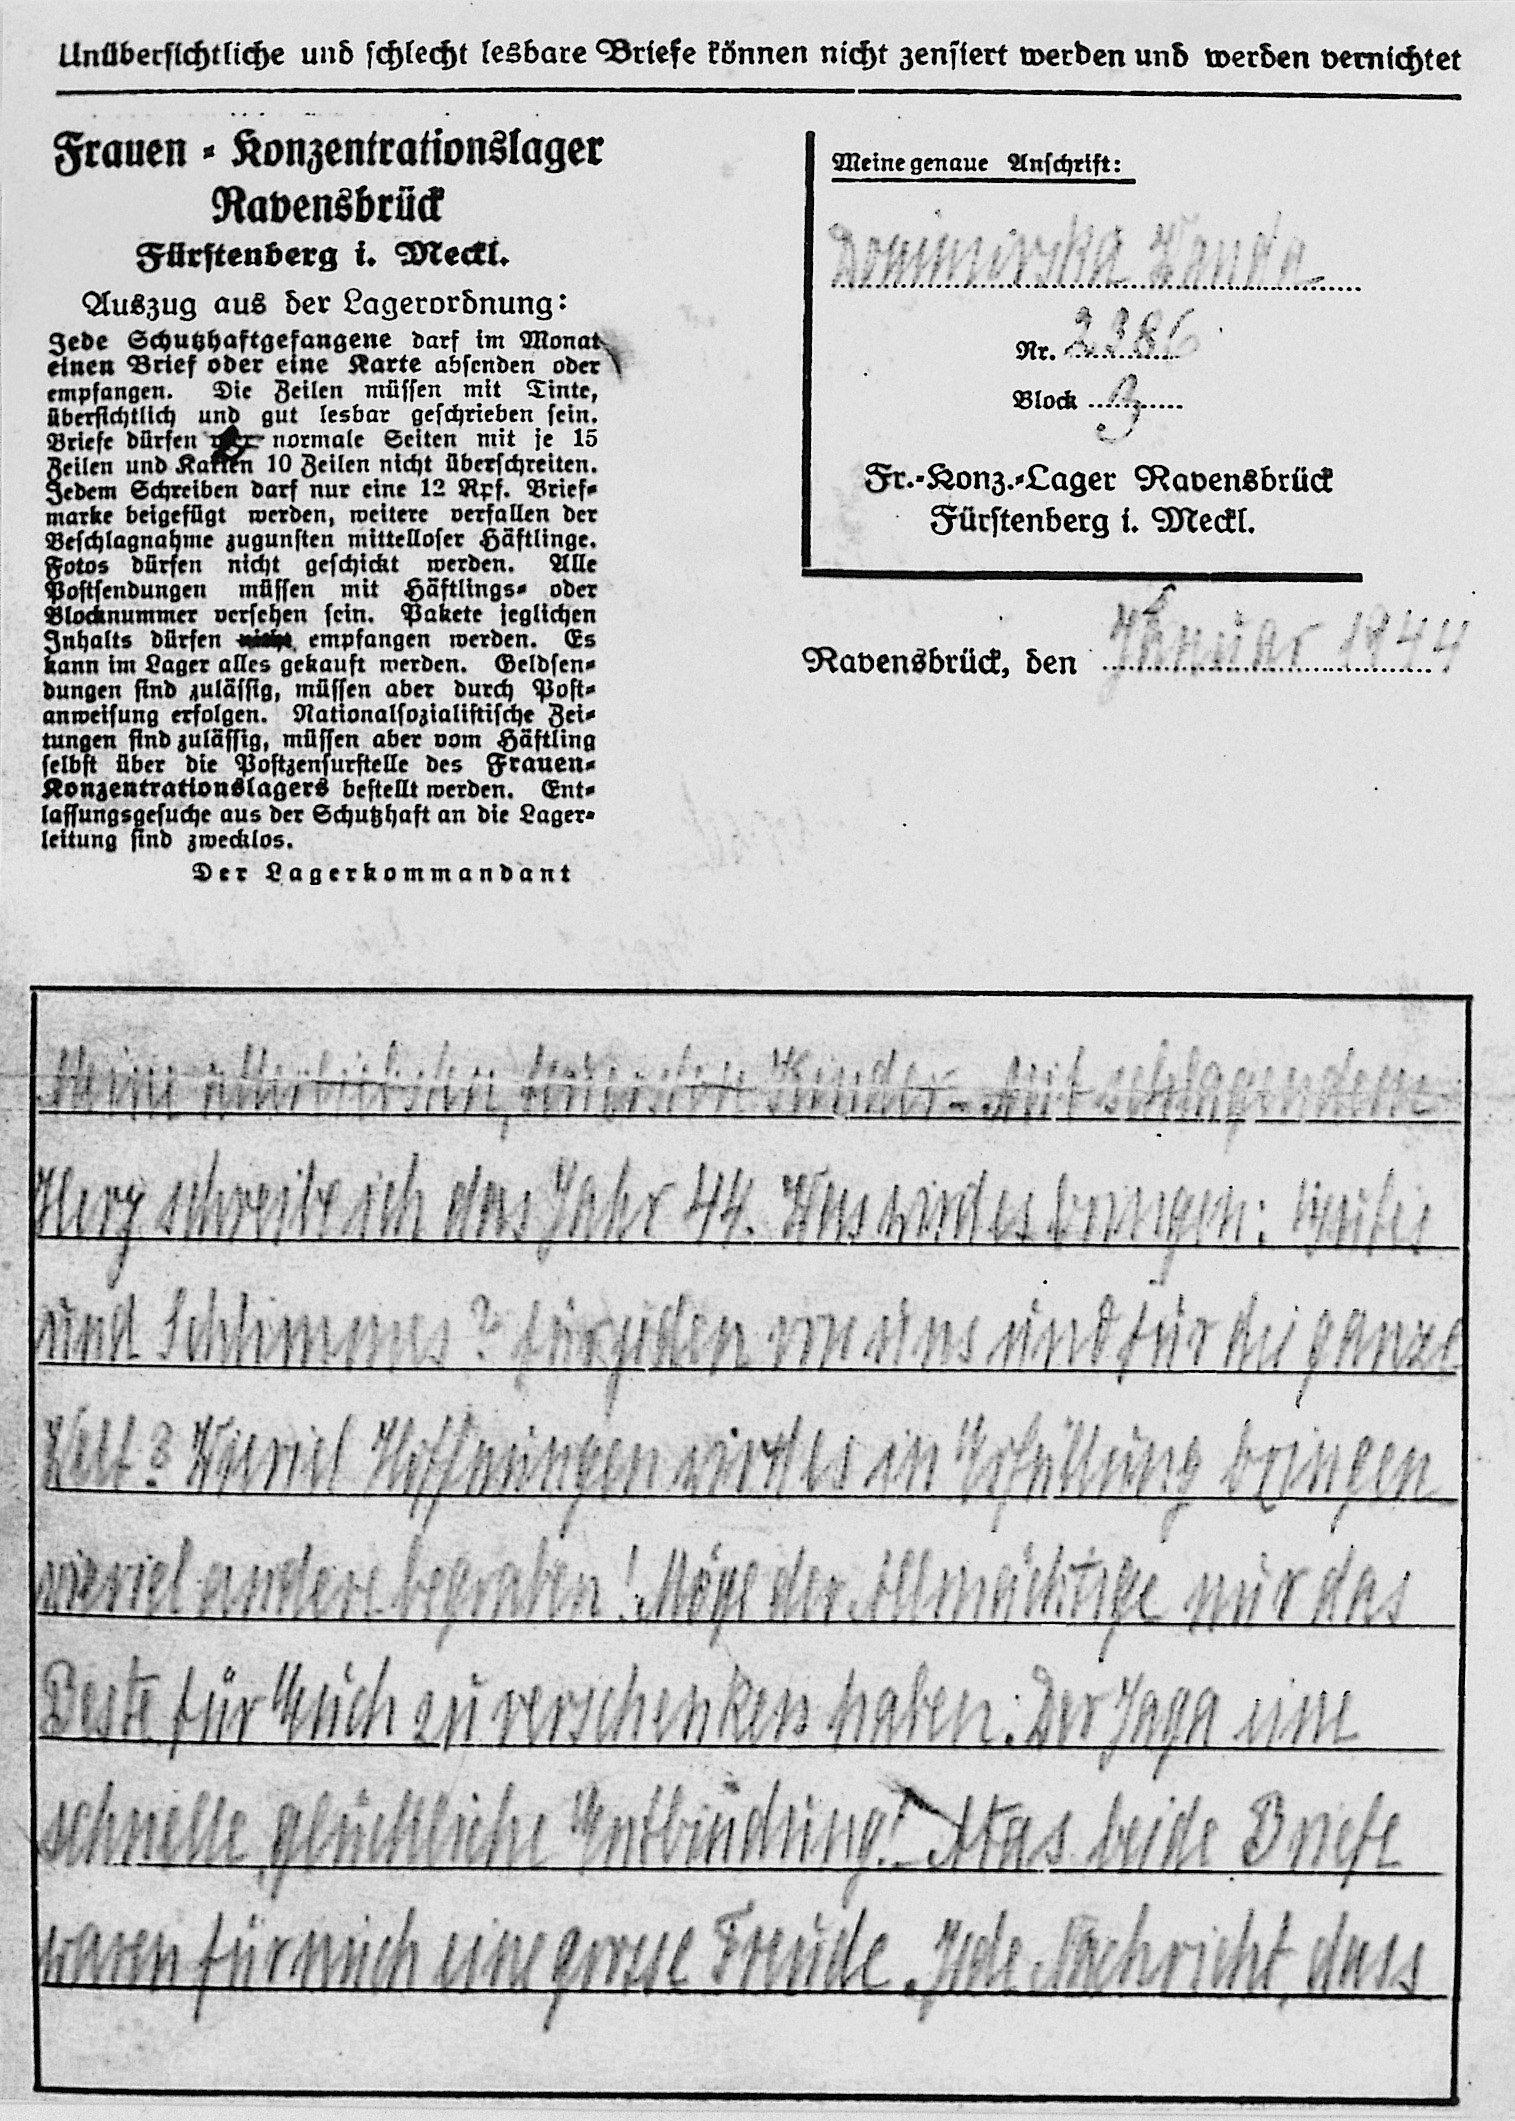 Unübersichtliche und schlecht lesbare Briefe können nicht zensiert werden und werden vernichtet
Frauen - Konzentrationslager
Ravensbrück
Fürstenberg i. Meckl.
Auszug aus der Lagerordnung:
Jede Schutzhaftgefangene darf im Monat
einen Brief oder eine Karte absenden oder
empfangen. Die Zeilen müssen mit Tinte,
übersichtlich und gut lesbar geschrieben sein.
Briefe dürfen normale Seiten mit je 15
Zeilen und Karten 10 Zeilen nicht überschreiten.
Jedem Schreiben darf nur eine 12 Rpf. Brief-
marke beigefügt werden, weitere verfallen der
Beschlagnahme zugunsten mittelloser Häftlinge.
Fotos dürfen nicht geschickt werden. Alle
Postsendungen müssen mit Häftlings- oder
Blocknummer versehen sein. Pakete jeglichen
Inhalts dürfen nicht empfangen werden. Es
kann im Lager alles gekauft werden. Geldsen-
dungen sind zulässig, müssen aber durch Post-
anweisung erfolgen. Nationalsozialistische Zei-
tungen sind zulässig, müssen aber vom Häftling
selbst über die Postzensurstelle des Frauen-
Konzentrationslagers bestellt werden. Ent-
lassungsgesuche aus der Schutzhaft an die Lager-
leitung sind zwecklos.
Der Lagerkommandant
Meine genaue Anschrift:
Dominirska Wanda
Nr. 2386
Block 3
Fr.-Konz.-Lager Ravensbrück
Fürstenberg i. Meckl.
Ravensbrück, den Januar 1944
Meine allerliebsten, teuersten Kinder - Mit schlagendem
Herz schreibe ich das Jahr 44. Was wird es bringen: Gutes
und Schlimmes? für jeden von uns und für die ganze
Welt? Wieviel Hoffnungen wird es in Erfüllung bringen
wieviel andere begraben! Möge der Allmächtige nur das
Beste für Euch zu verschenken haben. Der Jaga eine
schnelle, glückliche Entbindung! Atas beide Briefe
waren für mich eine grosse Freude. Jede Nachricht, dass